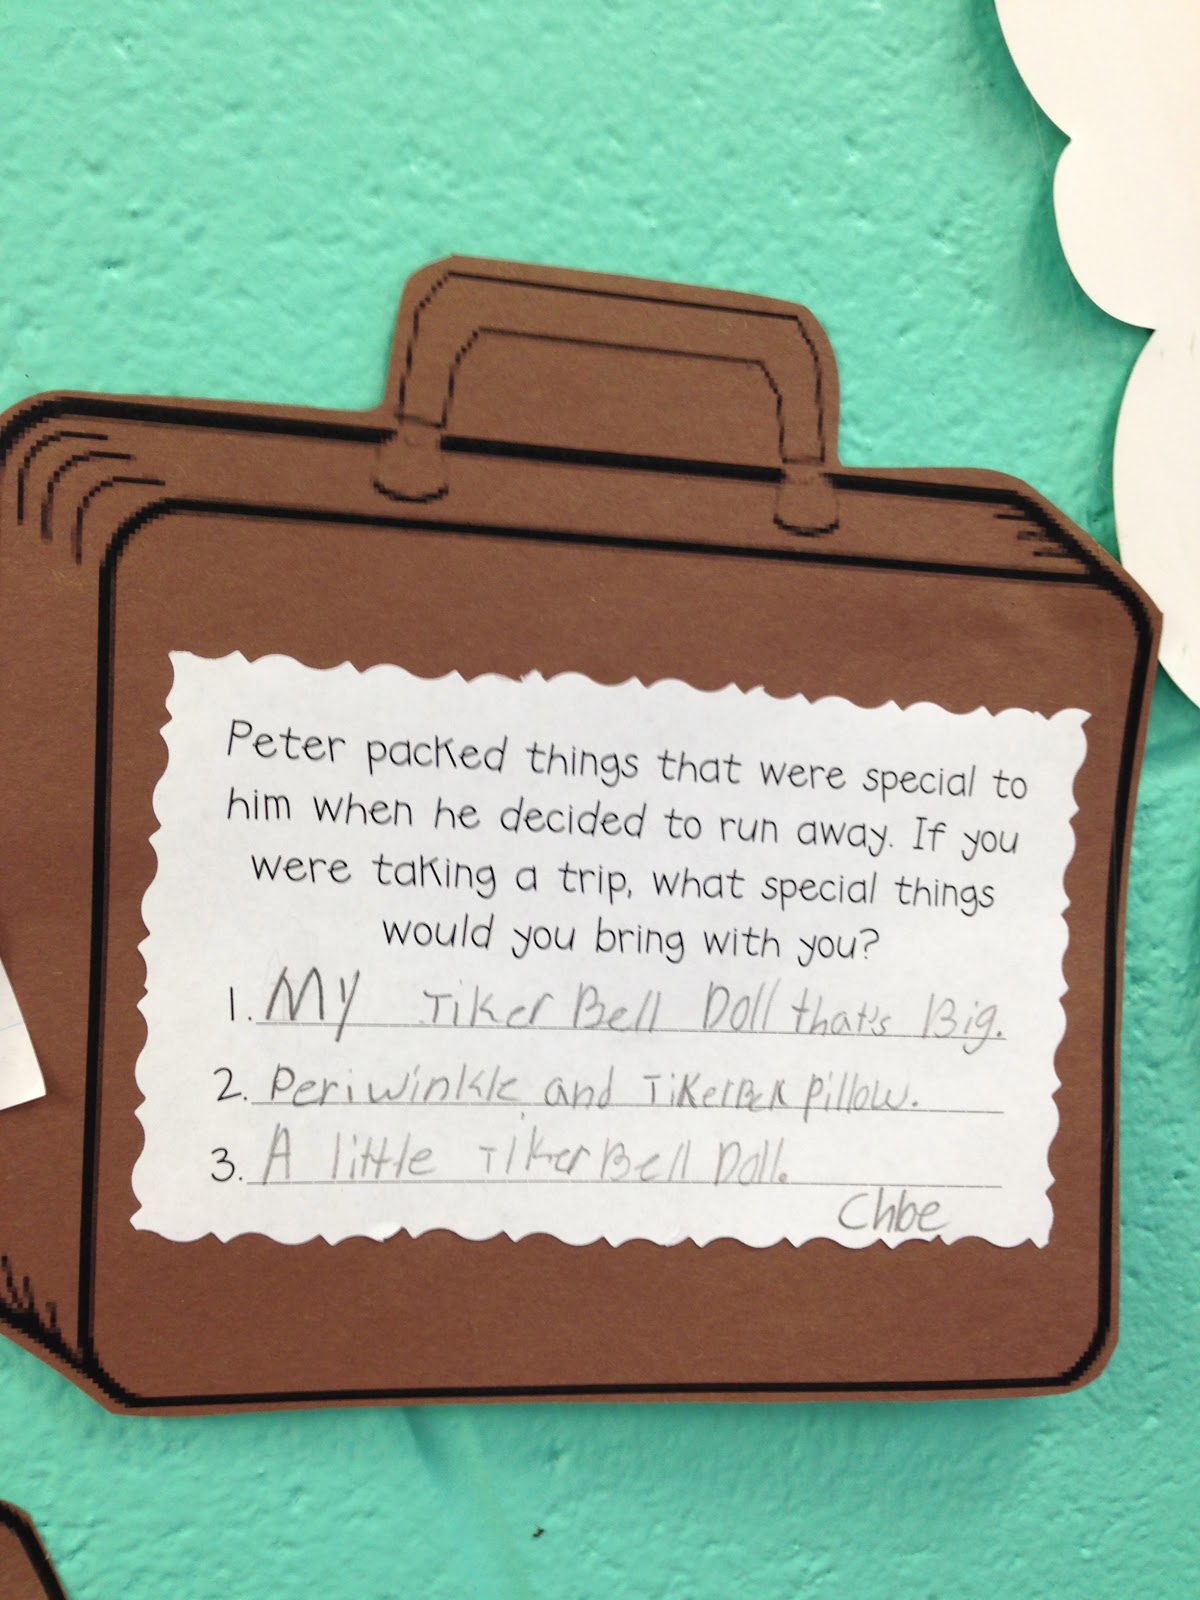 Peter packed things that were special to
him when he decided to run away. If you
were taking a trip, what special things
would you bring with you?
1. My Tiker Bell Doll that's Big.
2. Periwinkle and TikerBell pillow.
3. A little Tiker Bell Doll.
Chloe